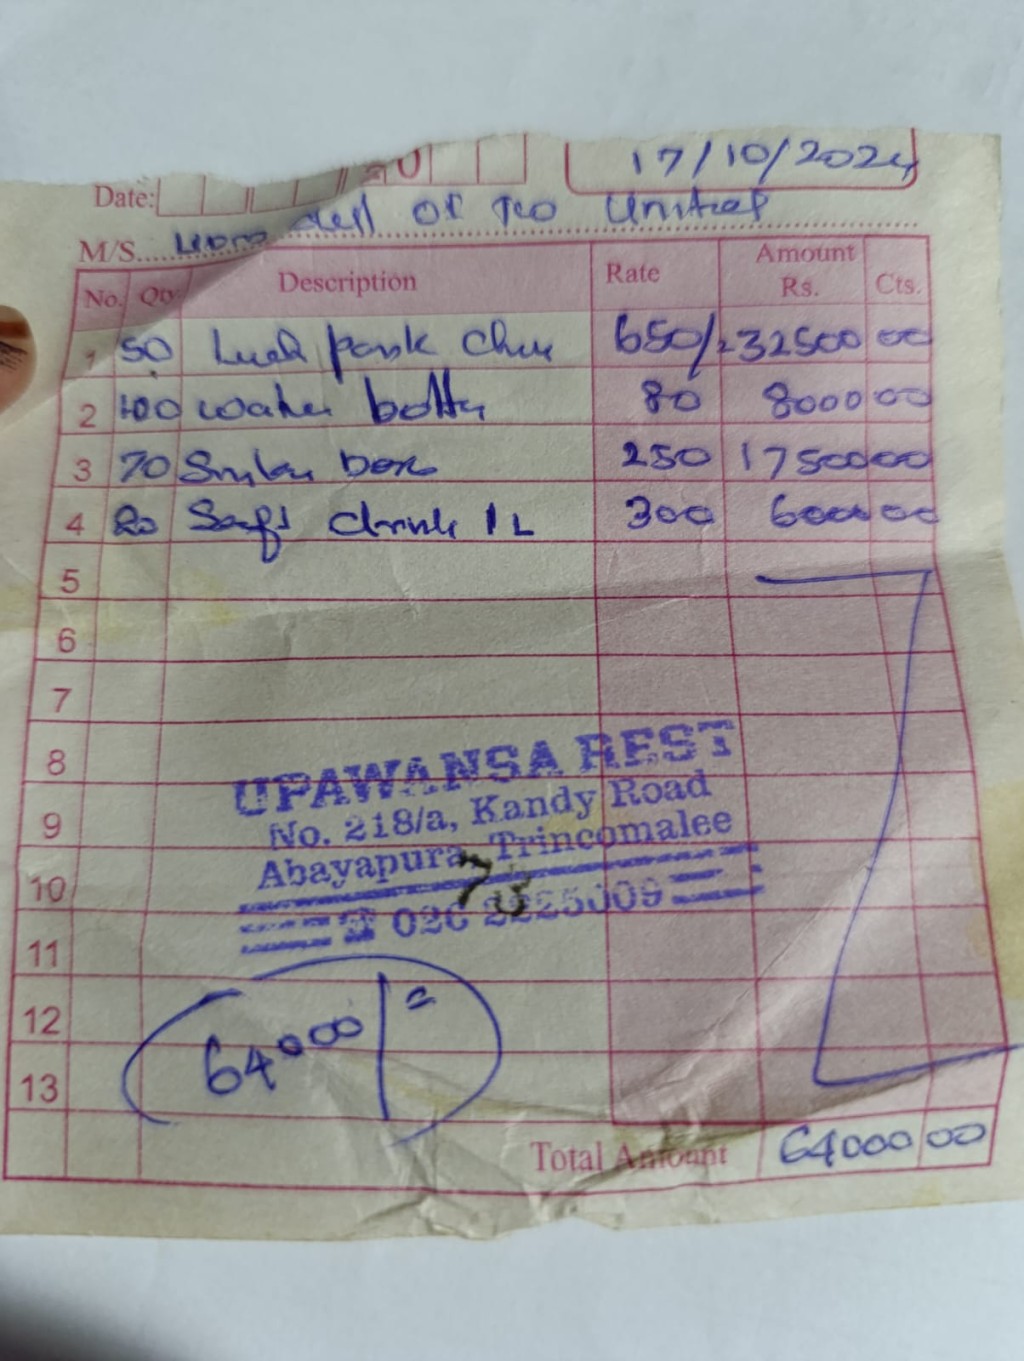 17/10/2024
Date:
of Uni
M/S.
No. Qty Description Rate Amount Rs. Cts.
1 50 Luch park Chu 650/- 32500 00
2 100 water bottu 80 8000 00
3 70 box 250 17500 00
4 20 Soft drink 1L 300 6000 00
5
6
7
8
UPAWANSA REST
9
No. 218/a, Kandy Road
10
Abayapura, Trincomalee
73
026 2225009
11
12
64000/=
13
Total Amount 64000 00